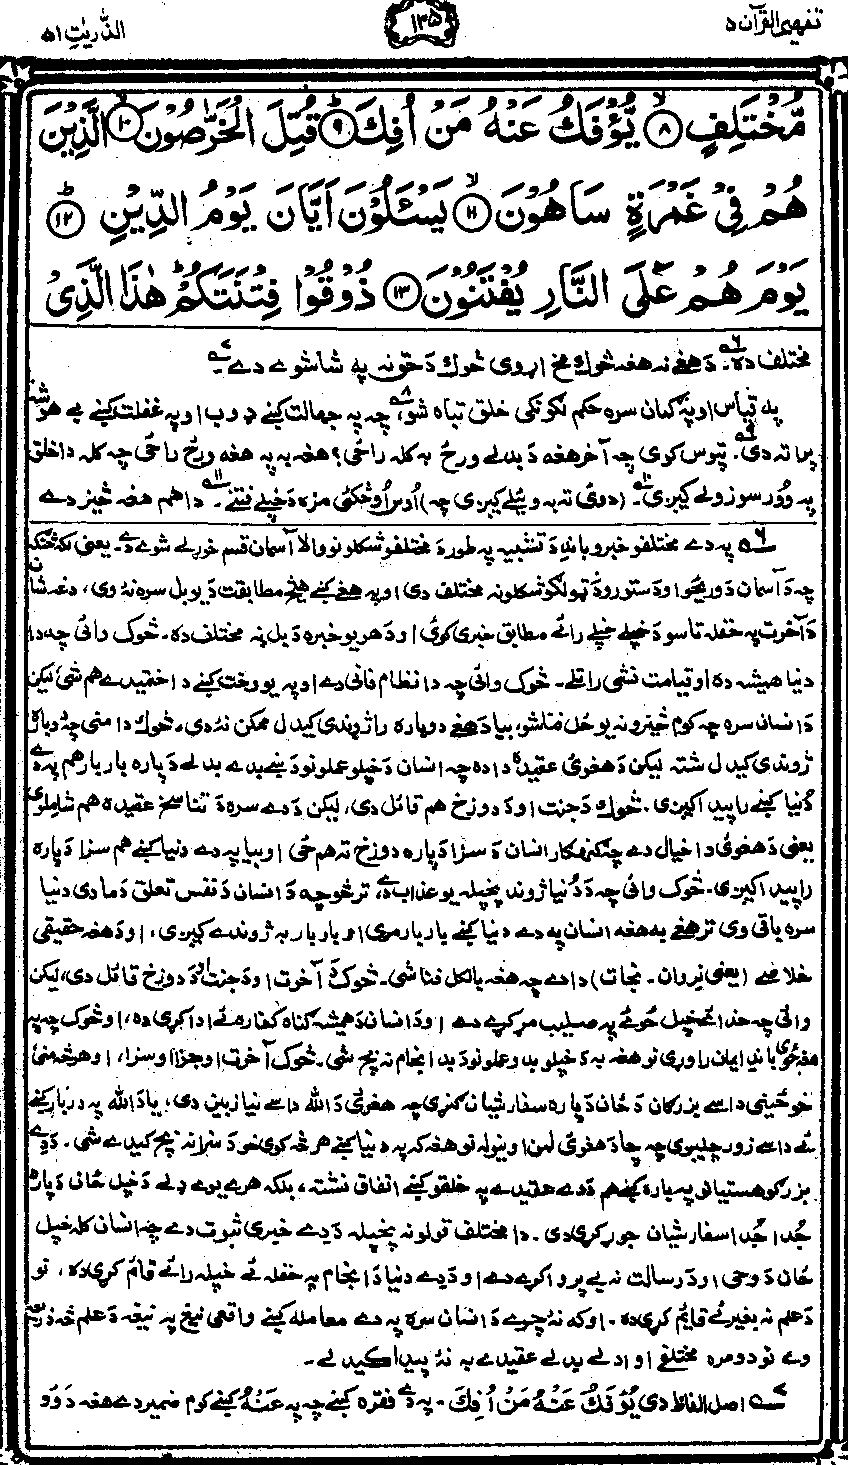 تفهیم القرآن ۵ ۱۳۵ الذّٰریٰت ۵۱
مُّخْتَلِفٍ ۸ يُّؤْفَكُ عَنْهُ مَنْ اُفِكَ ۹ قُتِلَ الْخَرّٰصُوْنَ ۱۰ الَّذِيْنَ
هُمْ فِيْ غَمْرَةٍ سَاهُوْنَ ۱۱ يَسْـَٔلُوْنَ اَيَّانَ يَوْمُ الدِّيْنِ ۱۲
يَوْمَ هُمْ عَلَى النَّارِ يُفْتَنُوْنَ ۱۳ ذُوْقُوْا فِتْنَتَكُمْ هٰذَا الَّذِىْ
مختلف ده ۶. دَهغے نه هغه څوك مخ اړوی څوك دَحق نه په شا شوے دے ۷
په قیاس او په ګمان سره حکم لګونکی خلق تباه شو ۸، چه په جهالت کښے ډوب او په غفلت کښے بے هوشه
پراته دی ۹. تپوس کوی چه آخر هغه دَ بدلے ورځ به کله راځی؟ هغه به په هغه ورځ راځی چه کله دا خلق
په وُور سوزولے کیږی ۱۰. (دوئ ته به ویلے کیږی چه) اُوس اُوڅکئ مزه دَخپلے فتنے ۱۱. دا هم هغه څیز دے
۶ په دے مختلفو خبرو باندے دَ تشبیه په طور دَ مختلفو شکلونو والا آسمان قسم خوړلے شوے دے. یعنی لکه څنګه
چه دَ آسمان دَ وریځو او دَ ستورو دَ ټولګو شکلونه مختلف دی او په هغے کښے هیڅ مطابقت دَ یو بل سره نۀ وی، دغه شان
دَ آخرت په حقله تاسو دَ خپلے خپلے رائے مطابق خبرې کوئ او دَ هر یو خبره دَ بل نه مختلف ده. څوک وائی چه دا
دنیا همیشه ده او قیامت نشی راتلے. څوک وائی چه دا نظام فانی دے او په یو وخت کښے دا ختمیدے هم شی لیکن
دَ انسان سره چه کوم څیزونه یو ځل فنا شو، بیا دَهغے دوباره راژوندی کیدل ممکن نۀ دی. څوك دا منی چه دوباره
ژوندی کیدل شته لیکن دَ هغوئ عقیده دا ده چه انسان دَخپلو عملونو دَ ښے بدے بدلے دَ پاره بار بار هم په دے
دُنیا کښے راپیدا کیږی. څوك دَ جنت او دَ دوزخ هم قائل دی، لیکن دَ دے سره دَ تناسخ عقیده هم شاملوی
یعنی دَ هغوئ دا خیال دے چه ګنهګار انسان دَ سزا دَپاره دوزخ ته هم ځی او بیا په دے دنیا کښے هم سزا دَپاره
راپیدا کیږی. څوک وائی چه دَ دُنیا ژوند پخپله یو عذاب دے، ترڅو چه دَ انسان دَ نفس تعلق دَ مادی دنیا
سره باقی وی ترهغے به هغه انسان په دے دنیا کښے بار بار مړی او بار بار به ژوندے کیږی، او دَ هغه حقیقی
خلاصے (یعنی نروان. نجات) دا دے چه هغه بالکل فنا شی. څوک دَ آخرت او دَ جنت او دَ دوزخ قائل دی، لیکن
وائی چه خدائ خپل ځوئے په صلیب مړ کړے دے او دَ انسان دَ همیشه ګناه کفاره ئے ادا کړی ده، او څوک چه په
هغۀ باندِ ایمان راوړی نو هغه به دَ خپلو بدو عملونو دَ بد انجام نه بچ شی. څوك آخرت او جزا او سزا، او هر څه منی
خو ځینی داسے بزرګان دَ ځان دَپاره سفارشیان ګنړی چه هغوئ دَ الله داسے نیازبین دی، یا دَ الله په دربار کښے
ئے داسے زور چلیږی چه چا دَ هغوئ لمن اونیوله نو هغه که په دنیا کښے هر څه کوی خو دَ سزا نه بچ کیدے شی. دَ دے
بزرګو هستیانو په باره کښے هم دَ دے عقیدے په خلقو کښے اتفاق نشته، بلکه هرے یوے ډلے دَ خپل ځان دَپاره
جُدا جُدا سفارشیان جوړ کړی دی. دا مختلف قولونه پخپله دَ دے خبری ثبوت دے چه انسان کله خپل
ځان دَ وحی او دَ رسالت نه بے پروا کړے دے او دَ دے دنیا دَ انجام په حقله ئے خپله رائے قائم کړی ده، نو
دَ علم نه بغیر ئے قائم کړی ده. او که نۀ چرے دَ انسان سره په دے معامله کښے واقعی نیغ په نیغه دَ علم څه ذریعه
وے نو دومره مختلفے او اَدلے بدلے عقیدے به نۀ پیدا کیدلے.
۷ اصل الفاظ دی يُؤْفَكُ عَنْهُ مَنْ اُفِكَ. په دے فقره کښے چه په عَنْهُ کښے کوم ضمیر دے هغه دَ دوو